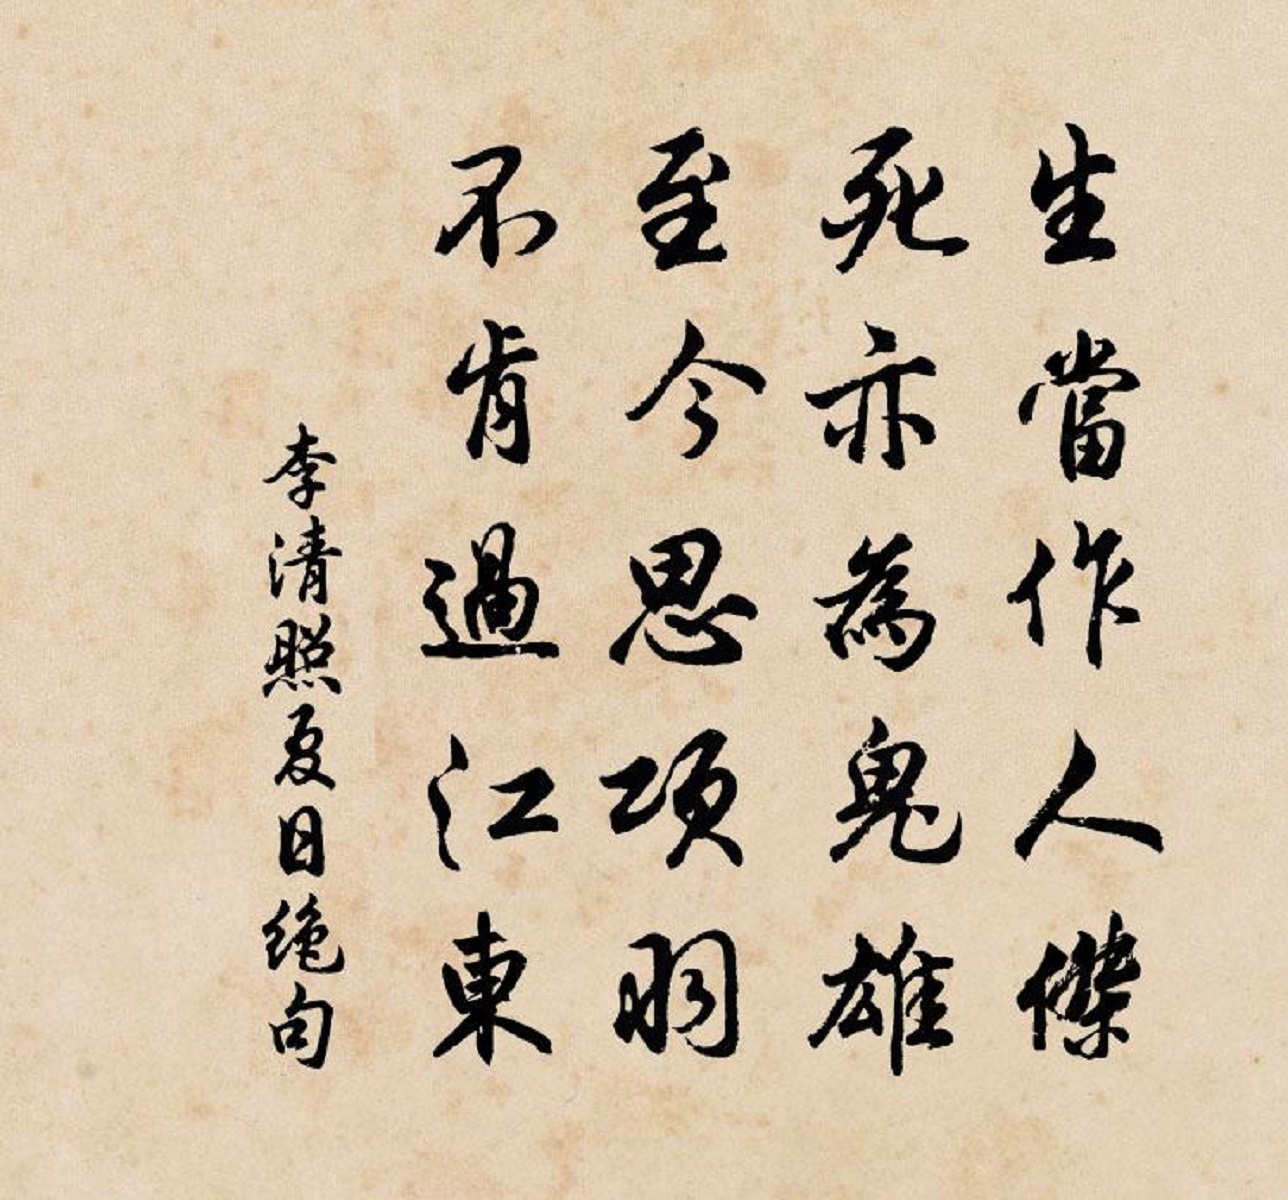 生當作人傑
死亦為鬼雄
至今思項羽
不肯過江東
李清照夏日絶句